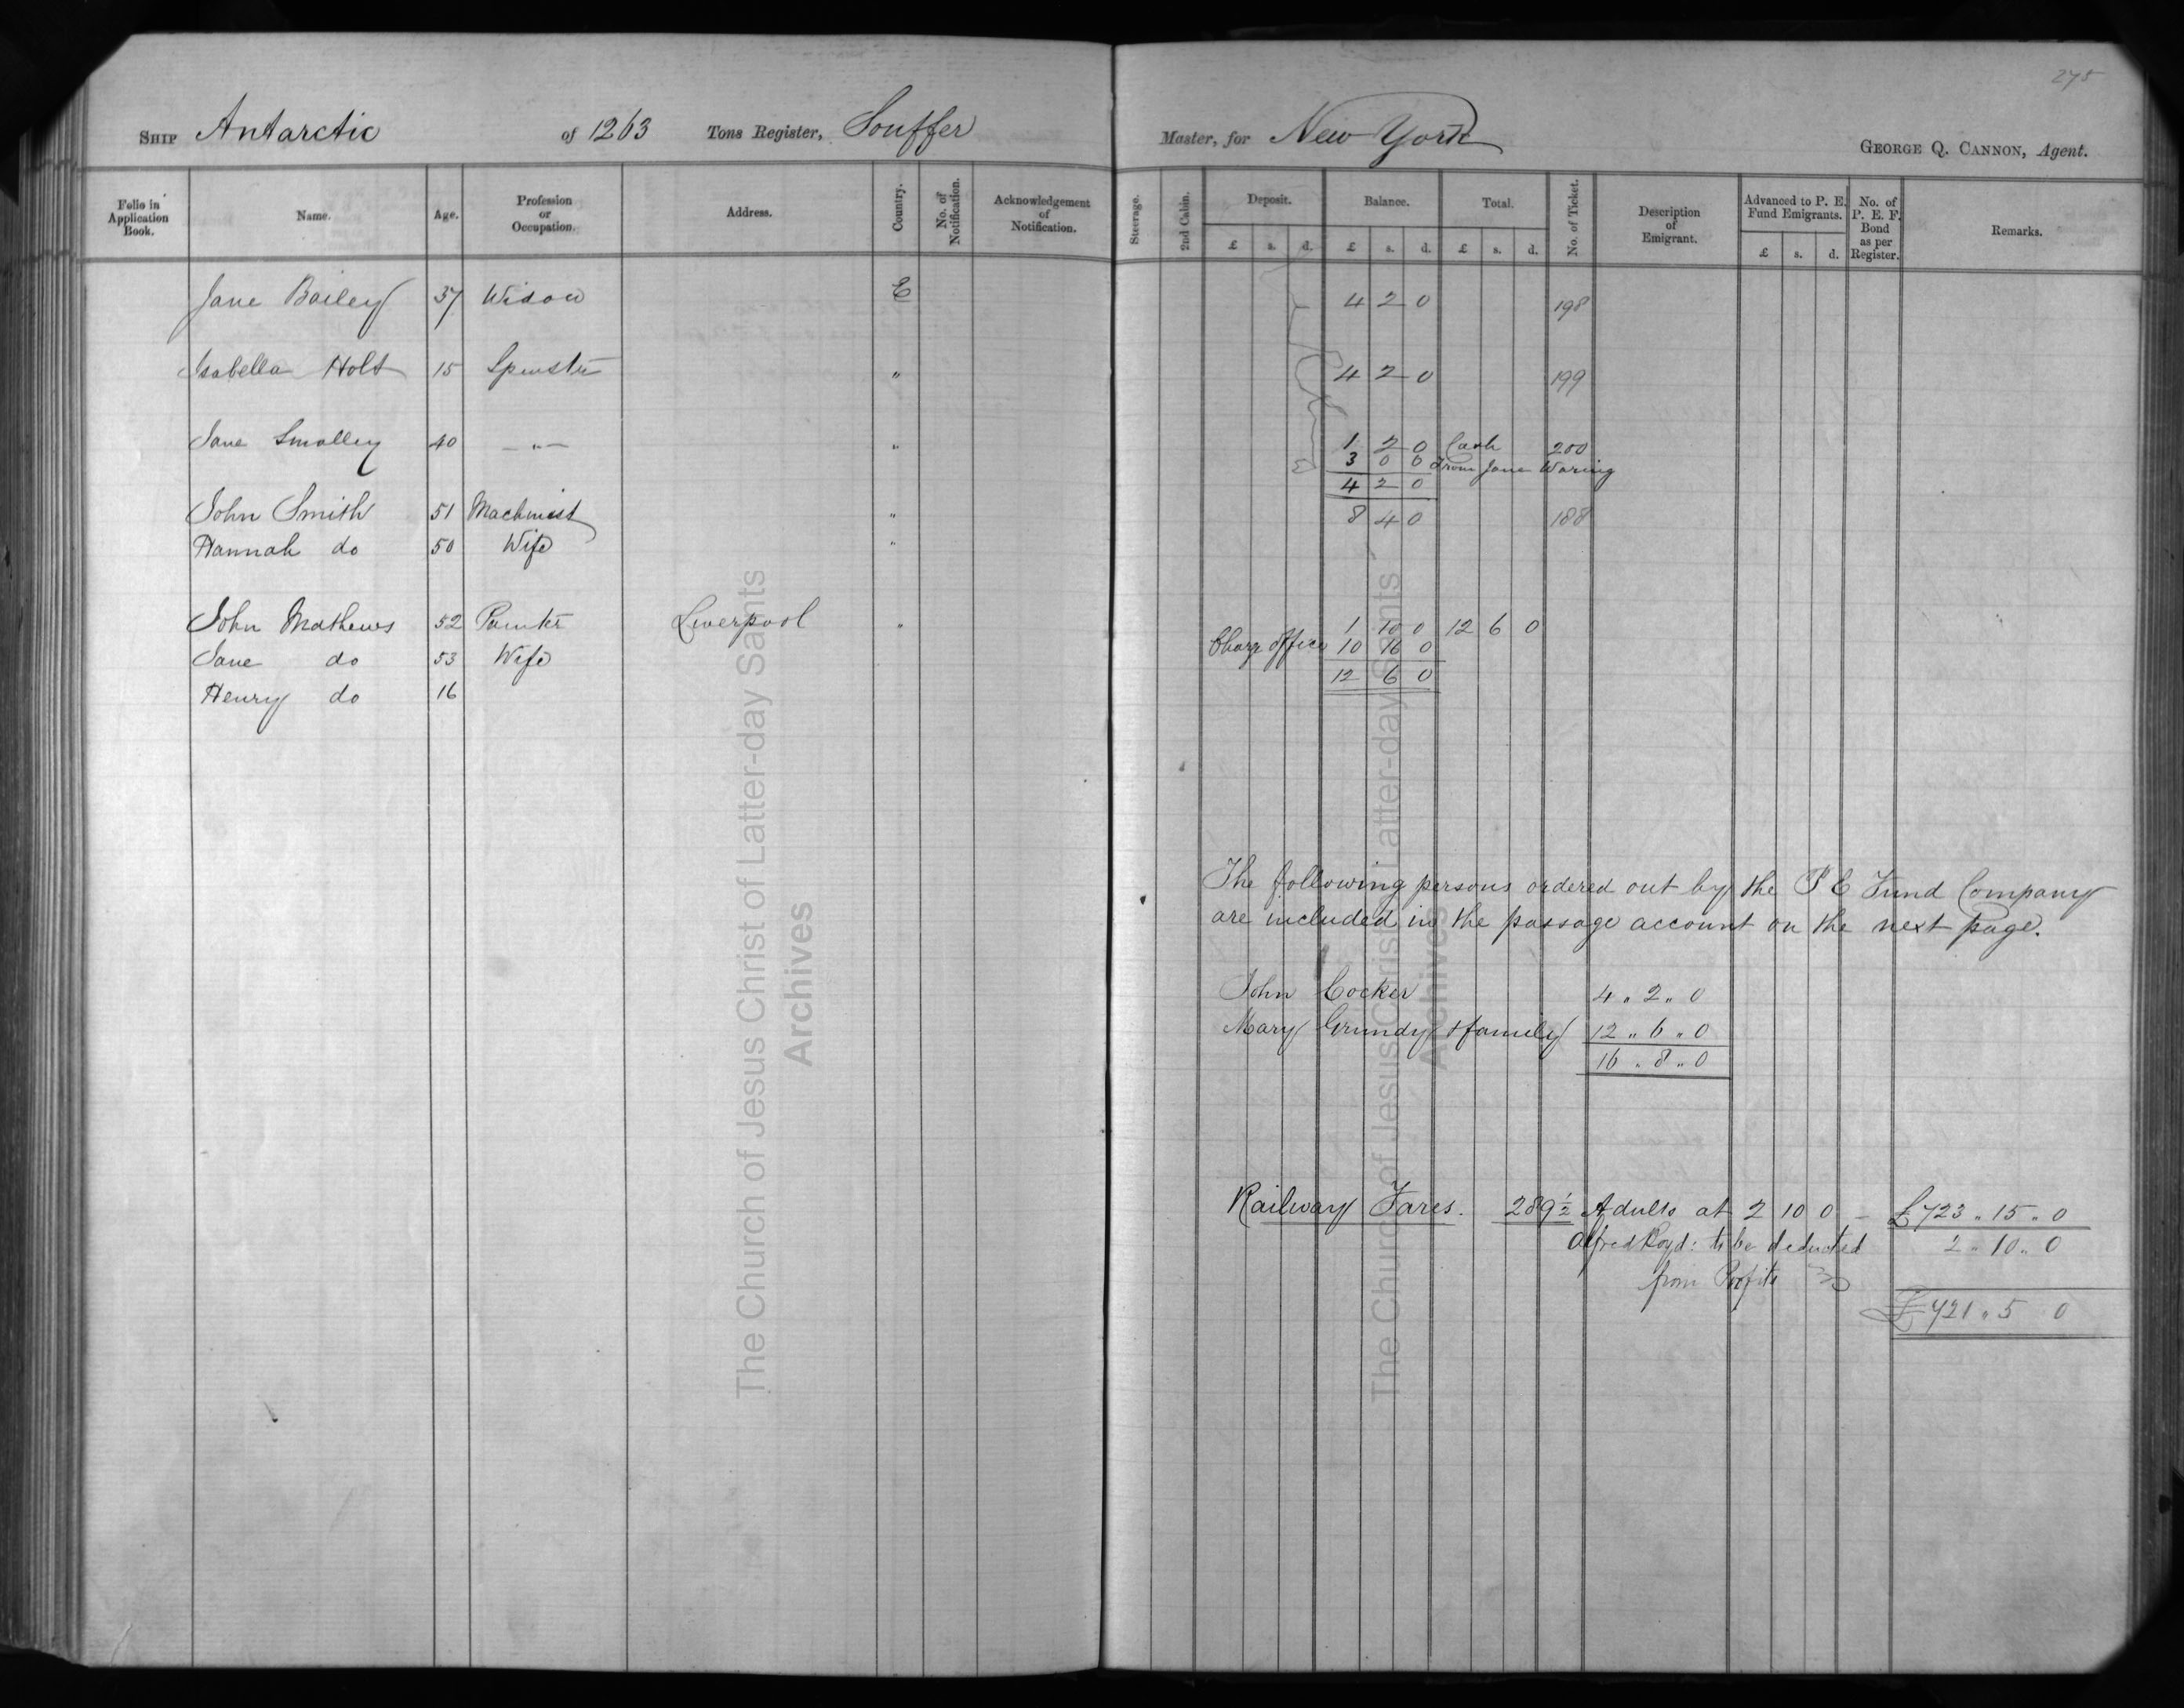 275
SHIP Antarctic of 1263 Tons Register, Souffer Master, for New York GEORGE Q. CANNON, Agent.
Folio in Application Book. Name. Age. Profession or Occupation. Address. Country. No. of Notification. Acknowledgement of Notification. Steerage. 2nd Cabin. Deposit. £ s. d. Balance. £ s. d. Total. £ s. d. No. of Ticket. Description of Emigrant. Advanced to P. E. Fund Emigrants. £ s. d. No. of P. E. F. Bond as per Register. Remarks.
Jane Bailey 37 Widow E 4 2 0 198
Isabella Holt 15 Spinster " 4 2 0 199
Jane Smalley 40 — " — " 1 2 0 Cash 200
3 0 0 From Jane Waring
4 2 0
John Smith 51 Machinist " 8 4 0 188
Hannah do 50 Wife "
John Mathews 52 Painter Liverpool " 1 10 0 12 6 0
Jane do 53 Wife Charge Office 10 16 0
Henry do 16 12 6 0
The following persons ordered out by the P E Fund Company
are included in the passage account on the next page.
John Cocker 4 " 2 " 0
Mary Grundy & family 12 " 6 " 0
16 " 8 " 0
Railway Fares. 289½ Adults at 2 10 0 — £723 " 15 " 0
Alfred Royd: to be deducted 2 " 10 " 0
from Profits
£721 " 5 0
The Church of Jesus Christ of Latter-day Saints
Archives
The Church of Jesus Christ Latter-day Saints
Archives